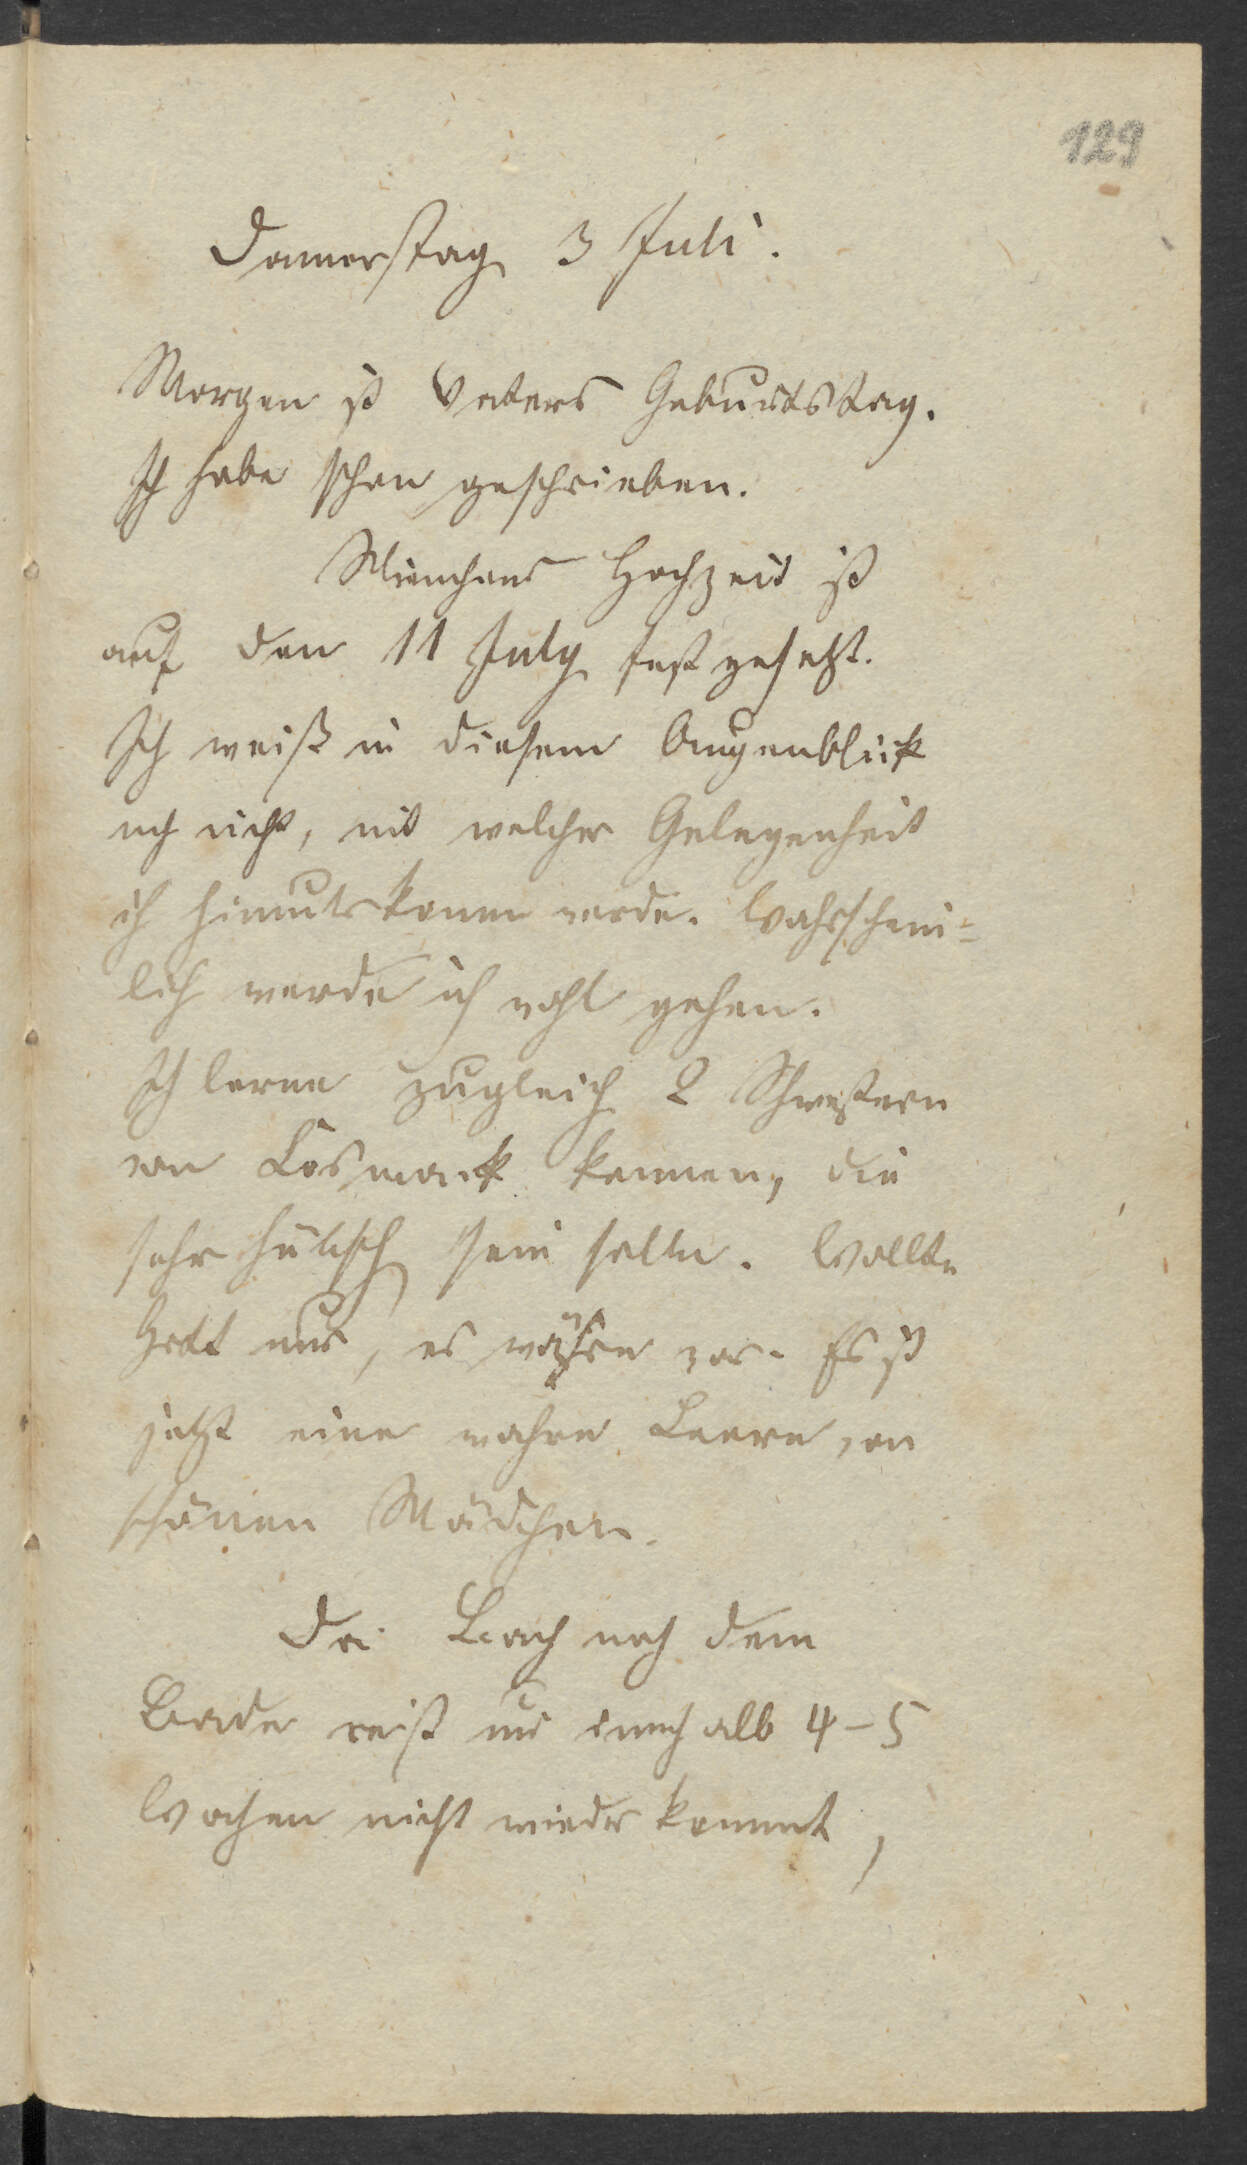 129
Donnerstag 3 Juli.
Morgen ist Vaters Geburtstag.
Ich habe schon geschrieben.
Mienchens Hochzeit ist
auf den 11 July fest gesetzt.
Ich weiß in diesem Augenblick
noch nicht, mit welcher Gelegenheit
ich hinunterkommen werde. Wahrschein=
lich werde ich wohl gehen.
Ich lerne zugleich 2 Schwestern
von Cosmack kennen, die
sehr hübsch sein sollen. Wollte
Gott nur, es wäre wahr. Es ist
jetzt eine wahre Leere von
schönen Mädchen.
Da Bach nach dem
Bade reist und innerhalb 4-5
Wochen nicht wieder kommt,